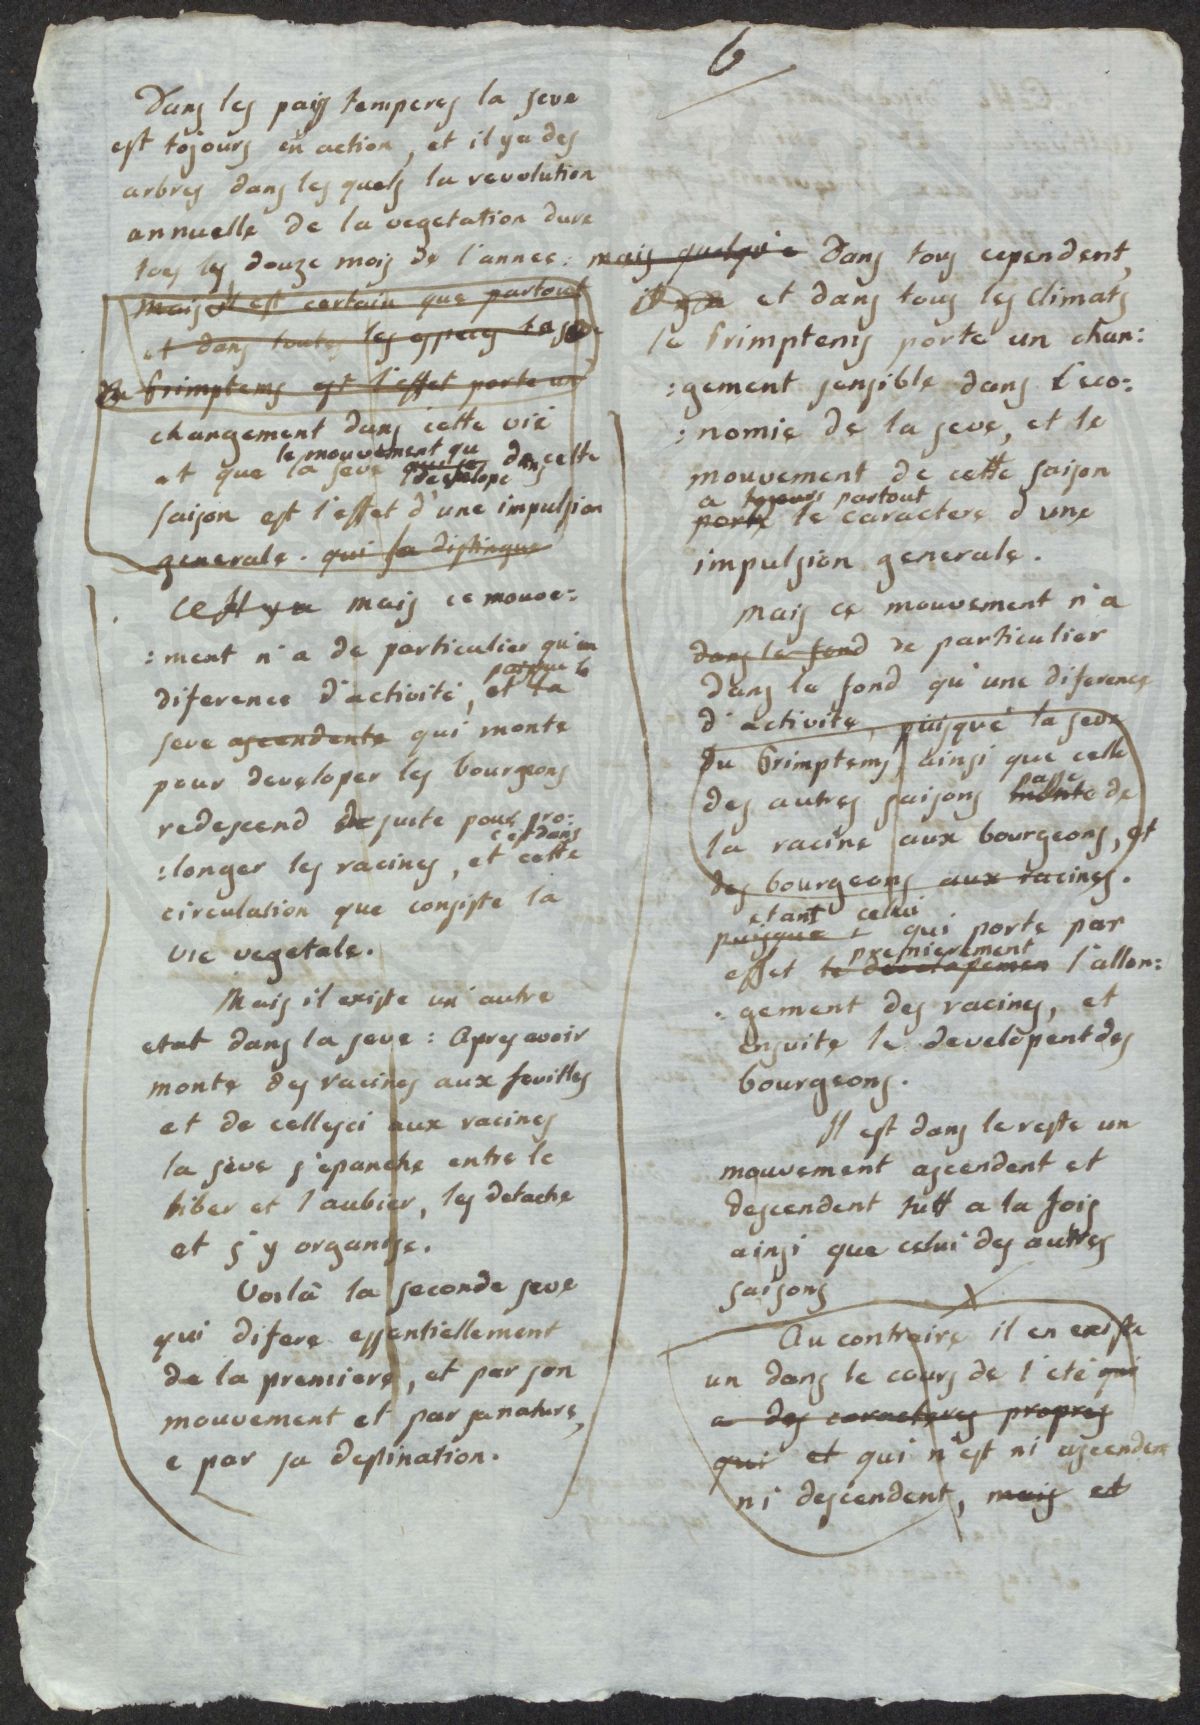 6
Dans les pays temperes la seve
est tojours en action, et il y a des
arbres dans les quels la revolution
annuelle de la vegetation dure
tous les douze mois de l'annee. mais quelqu'e
mais il est certain que partout
et dans toutes les especes la seve
Du Printemps est l'effet porte un
changement dans cette vie
le mouvement qu
et que la seve dans cette
develope
saison est l'effet d'une impulsion
generale. qui la distingue
Ce Il y a mais ce mouve:
:ment n'a de particulier qu'une
puisque la
diference d'activité, et la
seve ascendente qui monte
pour developer les bourgeons
redescend de suite pour pro:
c'est dans
:longer les racines, et cette
circulation que consiste la
vie vegetale.
Mais il existe un autre
etat dans la seve: Apres avoir
monte des racines aux feuilles
et de celles ci aux racines
la sève s'epanche entre le
liber et l'aubier, les detache
et s'y organise.
Voilà la seconde seve
qui difere essentiellement
de la premiere, et par son
mouvement et par sa nature,
e par sa destination.
Dans tous cependent,
il y a et dans tous les Climats
le Printemps porte un chan:
:gement sensible dans l'eco:
:nomie de la seve, et le
mouvement de cette saison
a tojours partout
porte le caractere d'une
impulsion generale.
Mais ce mouvement n'a
dans le fond de particulier
dans le fond qu'une diference
d'activite, puisque la seve
du Printemps, ainsi que celle
passe
des autres saisons monte de
la racine aux bourgeons, et
des bourgeons aux racines.
etant celui
puisque qui porte par
premierement
effet le developemen l'allon:
:gement des racines, et
ensuite le develòpent des
bourgeons.
Il est dans le reste un
mouvement ascendent et
descendent tutt a la fois
ainsi que celui des autres
saisons
Au contraire il en existe
un dans le cours de l'eté qui
a des caracteres propres
qui et qui n'est ni ascendent
ni descendent, mais et